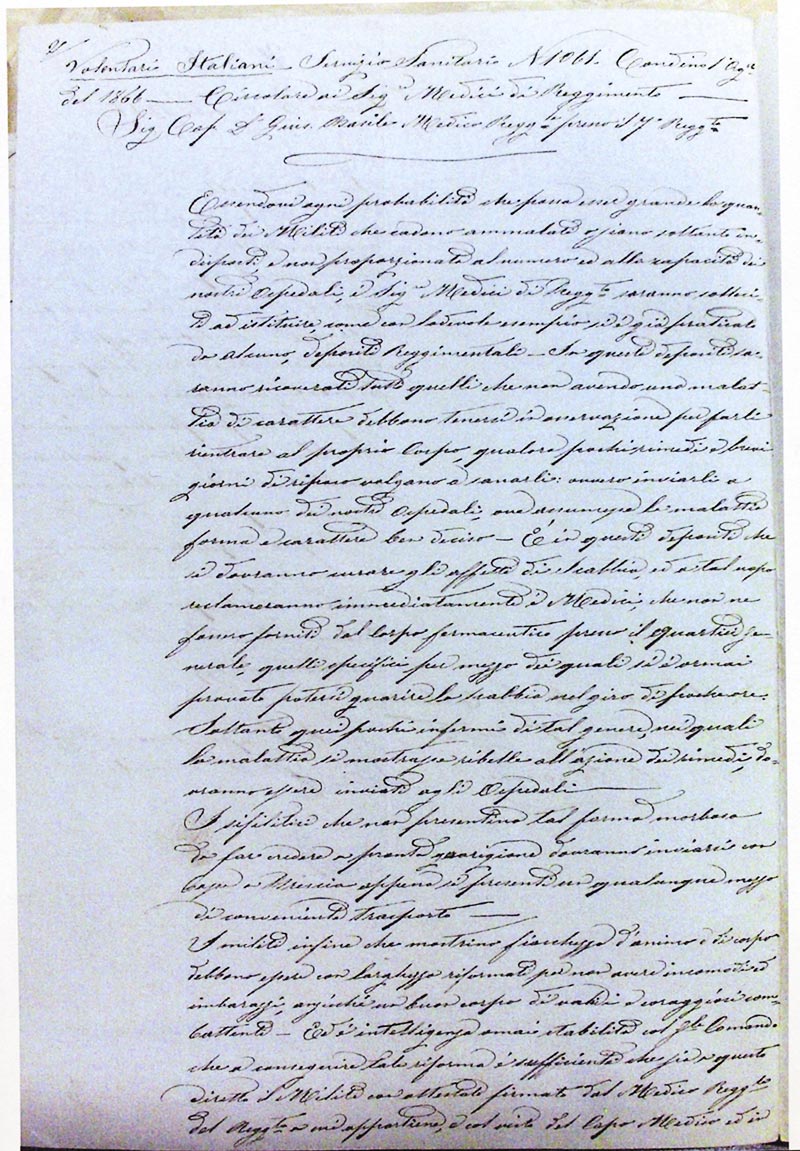 Volontari Italiani - Servizio Sanitario N 1061. Condino 1° Ag.
del 1866 — Circolare ai Sig.ri Medici di Reggimento —
Sig. Cap. Dr Gius. Basile Medico Regg.to presso il 7° Regg.to
Essendovi ogni probabilità che possa esser grande la quan-
tità dei Militi che cadono ammalati o siano soltanto in-
disposti e non proporzionata al numero ed alla capacità di
nostri Ospedali, i Sig.ri Medici di Regg.to saranno solleci-
ti ad istituire, come con lodevole esempio si è già praticato
da alcuno, depositi Reggimentali - In questi depositi sa-
ranno ricoverati tutti quelli che non avendo una malat-
tia di carattere debbono tenersi in osservazione per farli
rientrare al proprio Corpo qualora pochi rimedi e brevi
giorni di riposo valgano a sanarli: ovvero inviarli a
qualcuno dei nostri Ospedali, ove assumesse la malattia
forma e carattere ben deciso - È in questi depositi che
si dovranno curare gli affetti di scabbia, ed a tal uopo
reclameranno immediatamente i Medici, che non ne
fossero forniti dal Corpo farmaceutico presso il quartier ge-
nerale, quelli specifici per mezzo dei quali si è ormai
provato potersi guarire la scabbia nel giro di poche ore.
Soltanto quei pochi infermi di tal genere, nei quali
la malattia si mostrasse ribelle all'azione dei rimedi, do-
vranno essere inviati agli Ospedali —
I sifilitici che non presentino tal forma morbosa
da far credere a pronta guarigione dovranno inviarsi con
a Brescia appena si presenti un qualunque mezzo
di conveniente trasporto —
I militi infine che mostrino fiacchezza d'animo e di corpo
debbono essere con larghezza riformati per non avere incomodi ed
imbarazzi, anziché un buon corpo di validi e coraggiosi com-
battenti - Ed è intelligenza omai stabilita col Comando
che a conseguire tale riforma è sufficiente che sia a questo
diretto il Milite con attestato firmato dal Medico Regg.to
del Regg.to a cui appartiene, e col visto del Capo Medico ed in